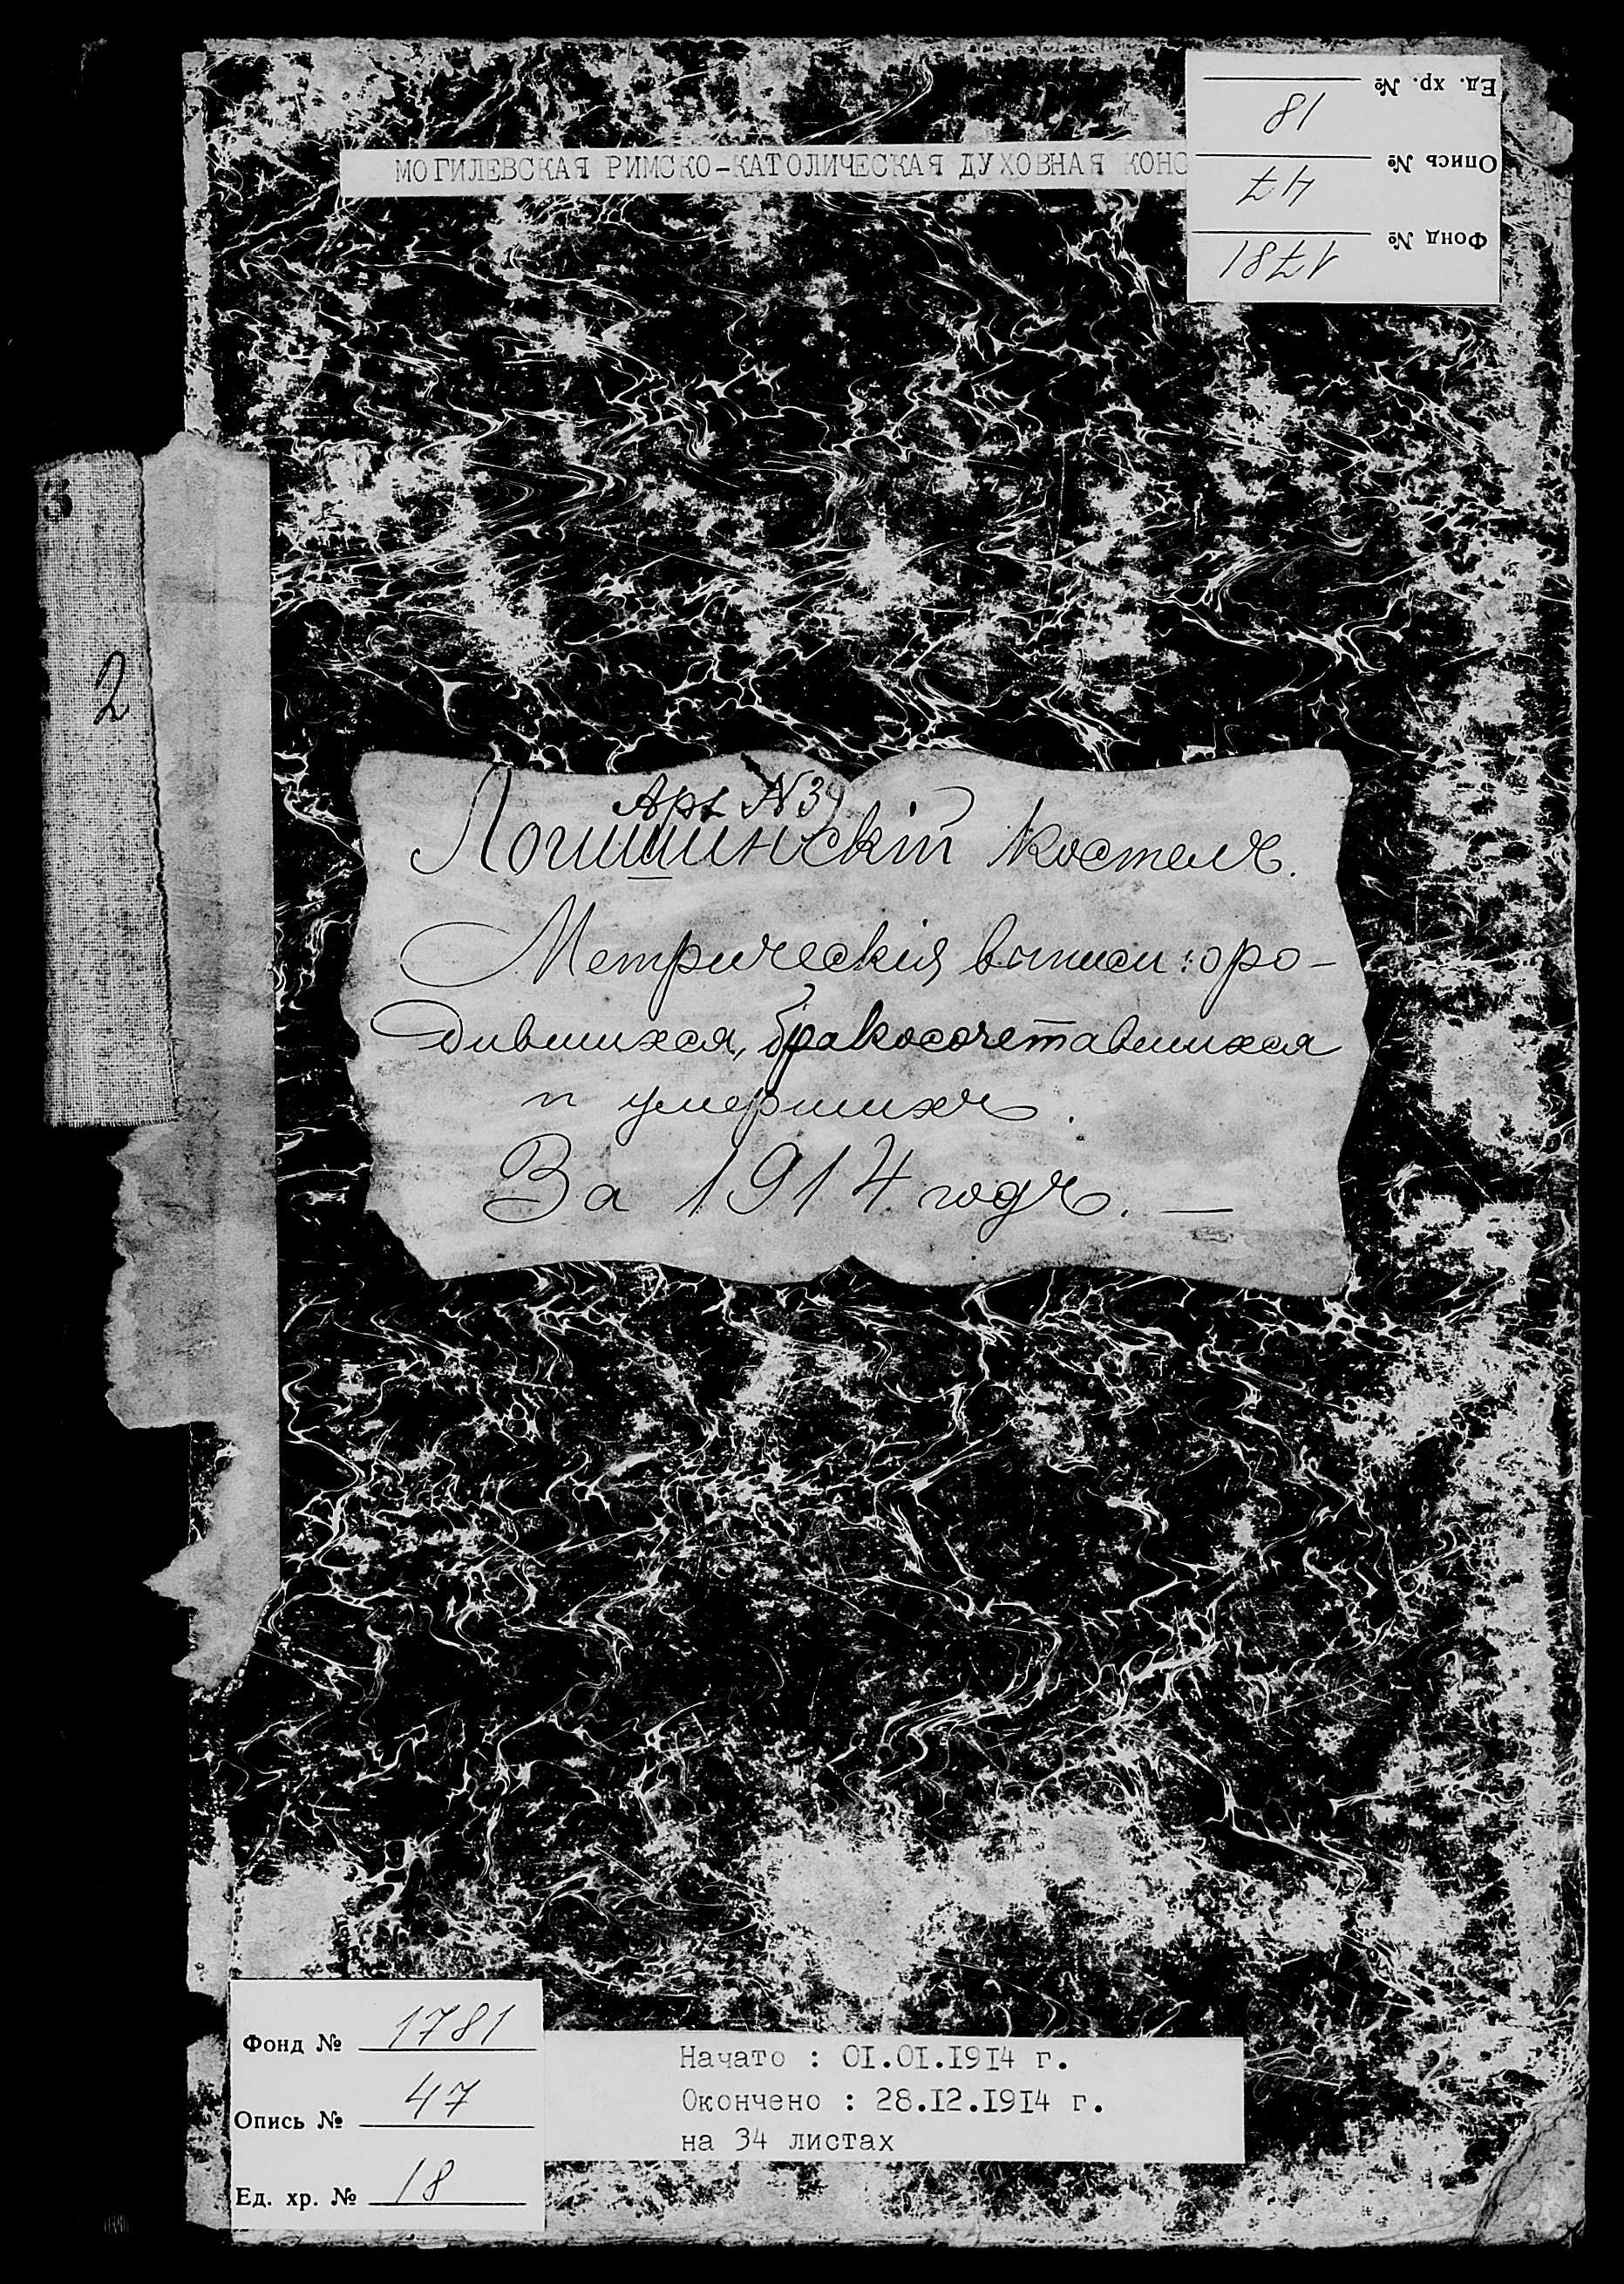 МОГИЛЕВСКАЯ РИМСКО-КАТОЛИЧЕСКАЯ ДУХОВНАЯ КОНС
Фонд № 1781
Опись № 47
Ед. хр. № 18
3
2
Арх №
Логишинскій Костелъ.
Метрическія выписи: о ро-
дившихся, бракосочетавшихся
и умершихъ.
За 1914 годъ. —
Фонд № 1781
Опись № 47
Ед. хр. № 18
Начато : 01.01.1914 г.
Окончено : 28.12.1914 г.
на 34 листах